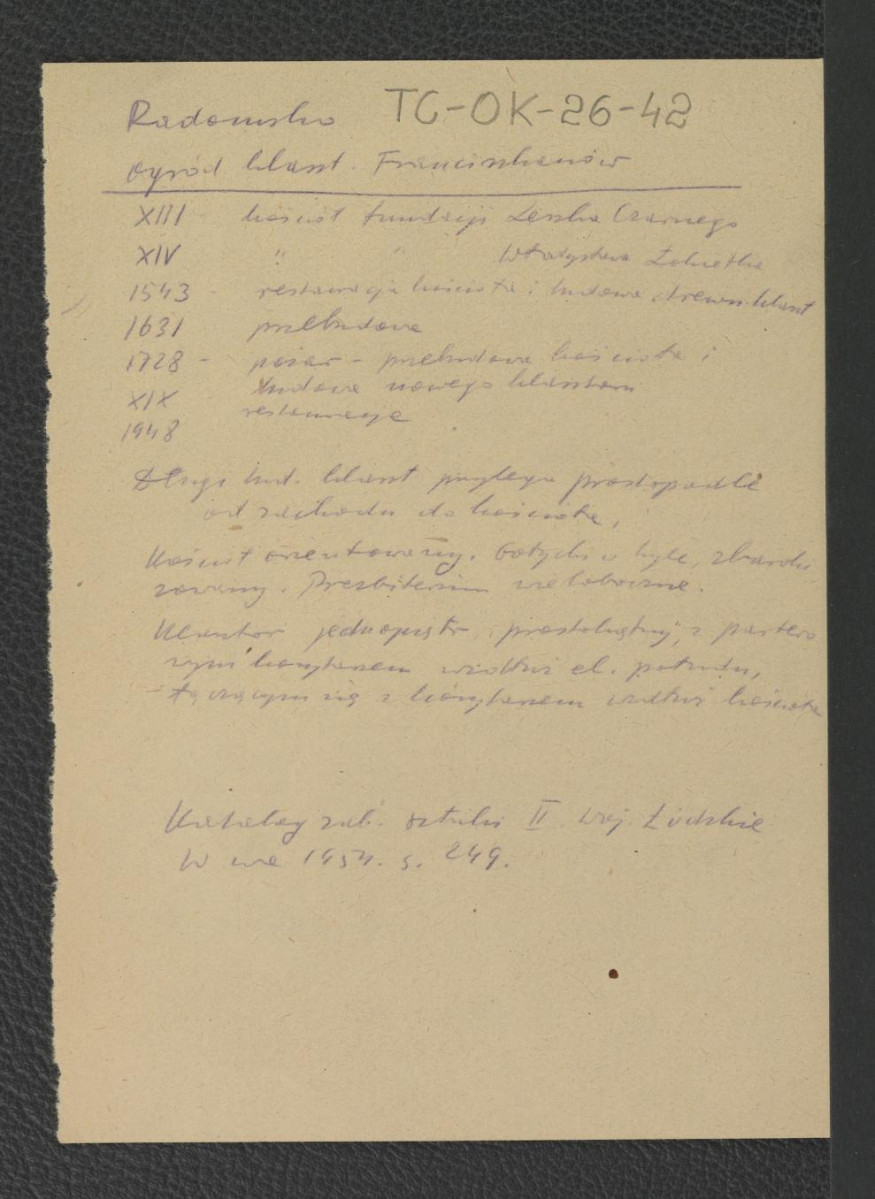 Radomsko TC-OK-26-42
ogród klaszt. Franciszkanów
XIII kościół fundacji Leszka Czarnego
XIV " " Władysława Łokietka
1543 - restauracja kościoła i budowa drewn. klaszt
1631 przebudowa
1728 - pożar - przebudowa kościoła i
budowa nowego klasztoru
XIX
restauracje
1948
Długi bud. klaszt przylega prostopadle
od zachodu do kościoła,
Kościół orientowany. Gotycki w bryle, zbaroki
zowany. Prezbiterium wieloboczne.
Klasztor jednopiętr, prostokątny, z partero
wym korytarzem wzdłuż el. połudn,
łączącym się z korytarzem wzdłuż kościoła
Katalog zab. sztuki II. woj. Łódzkie
W wa 1954. s. 249.